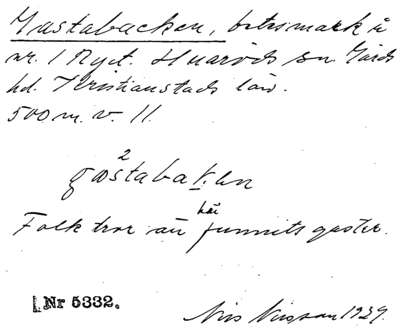 Gastabacken, betesmark å
nr. 1 Nyet. Huaröds sn Gärds
hd. Kristianstads län.
500 m. v. 11.
2
gastabaken
Folk tror att här funnits gaster.
Nr 5332.
Nils Nilsson 1929.